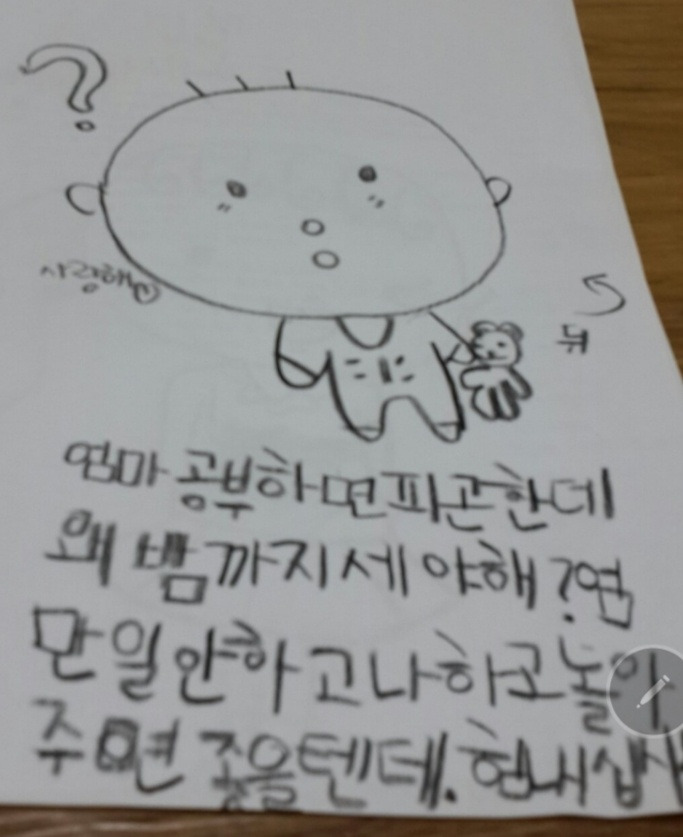 ?
사랑해
뒤
엄마 공부하면 피곤한데
왜 밤까지 세야해? 엄
만 일안하고 나하고 놀아
주면 좋을텐데. 힘내십사